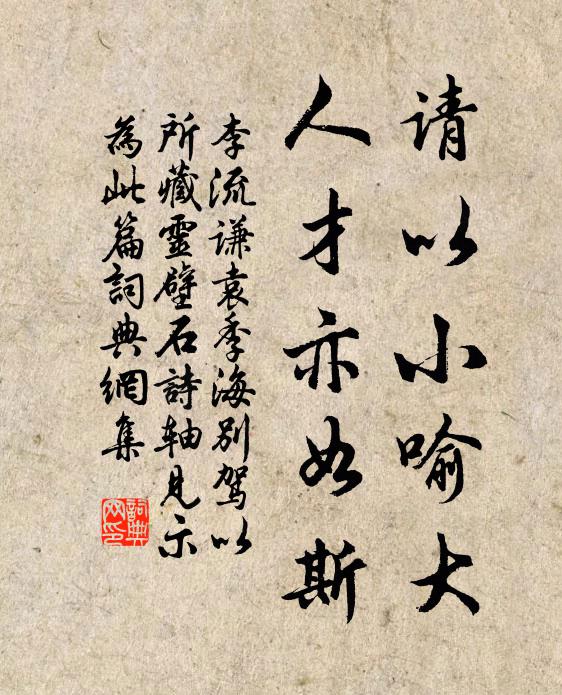 请以小喻大
人才亦如斯
李流谦袁季海别驾以
所藏靈壁石詩轴見示
為此篇詞典網集
詞典
网印